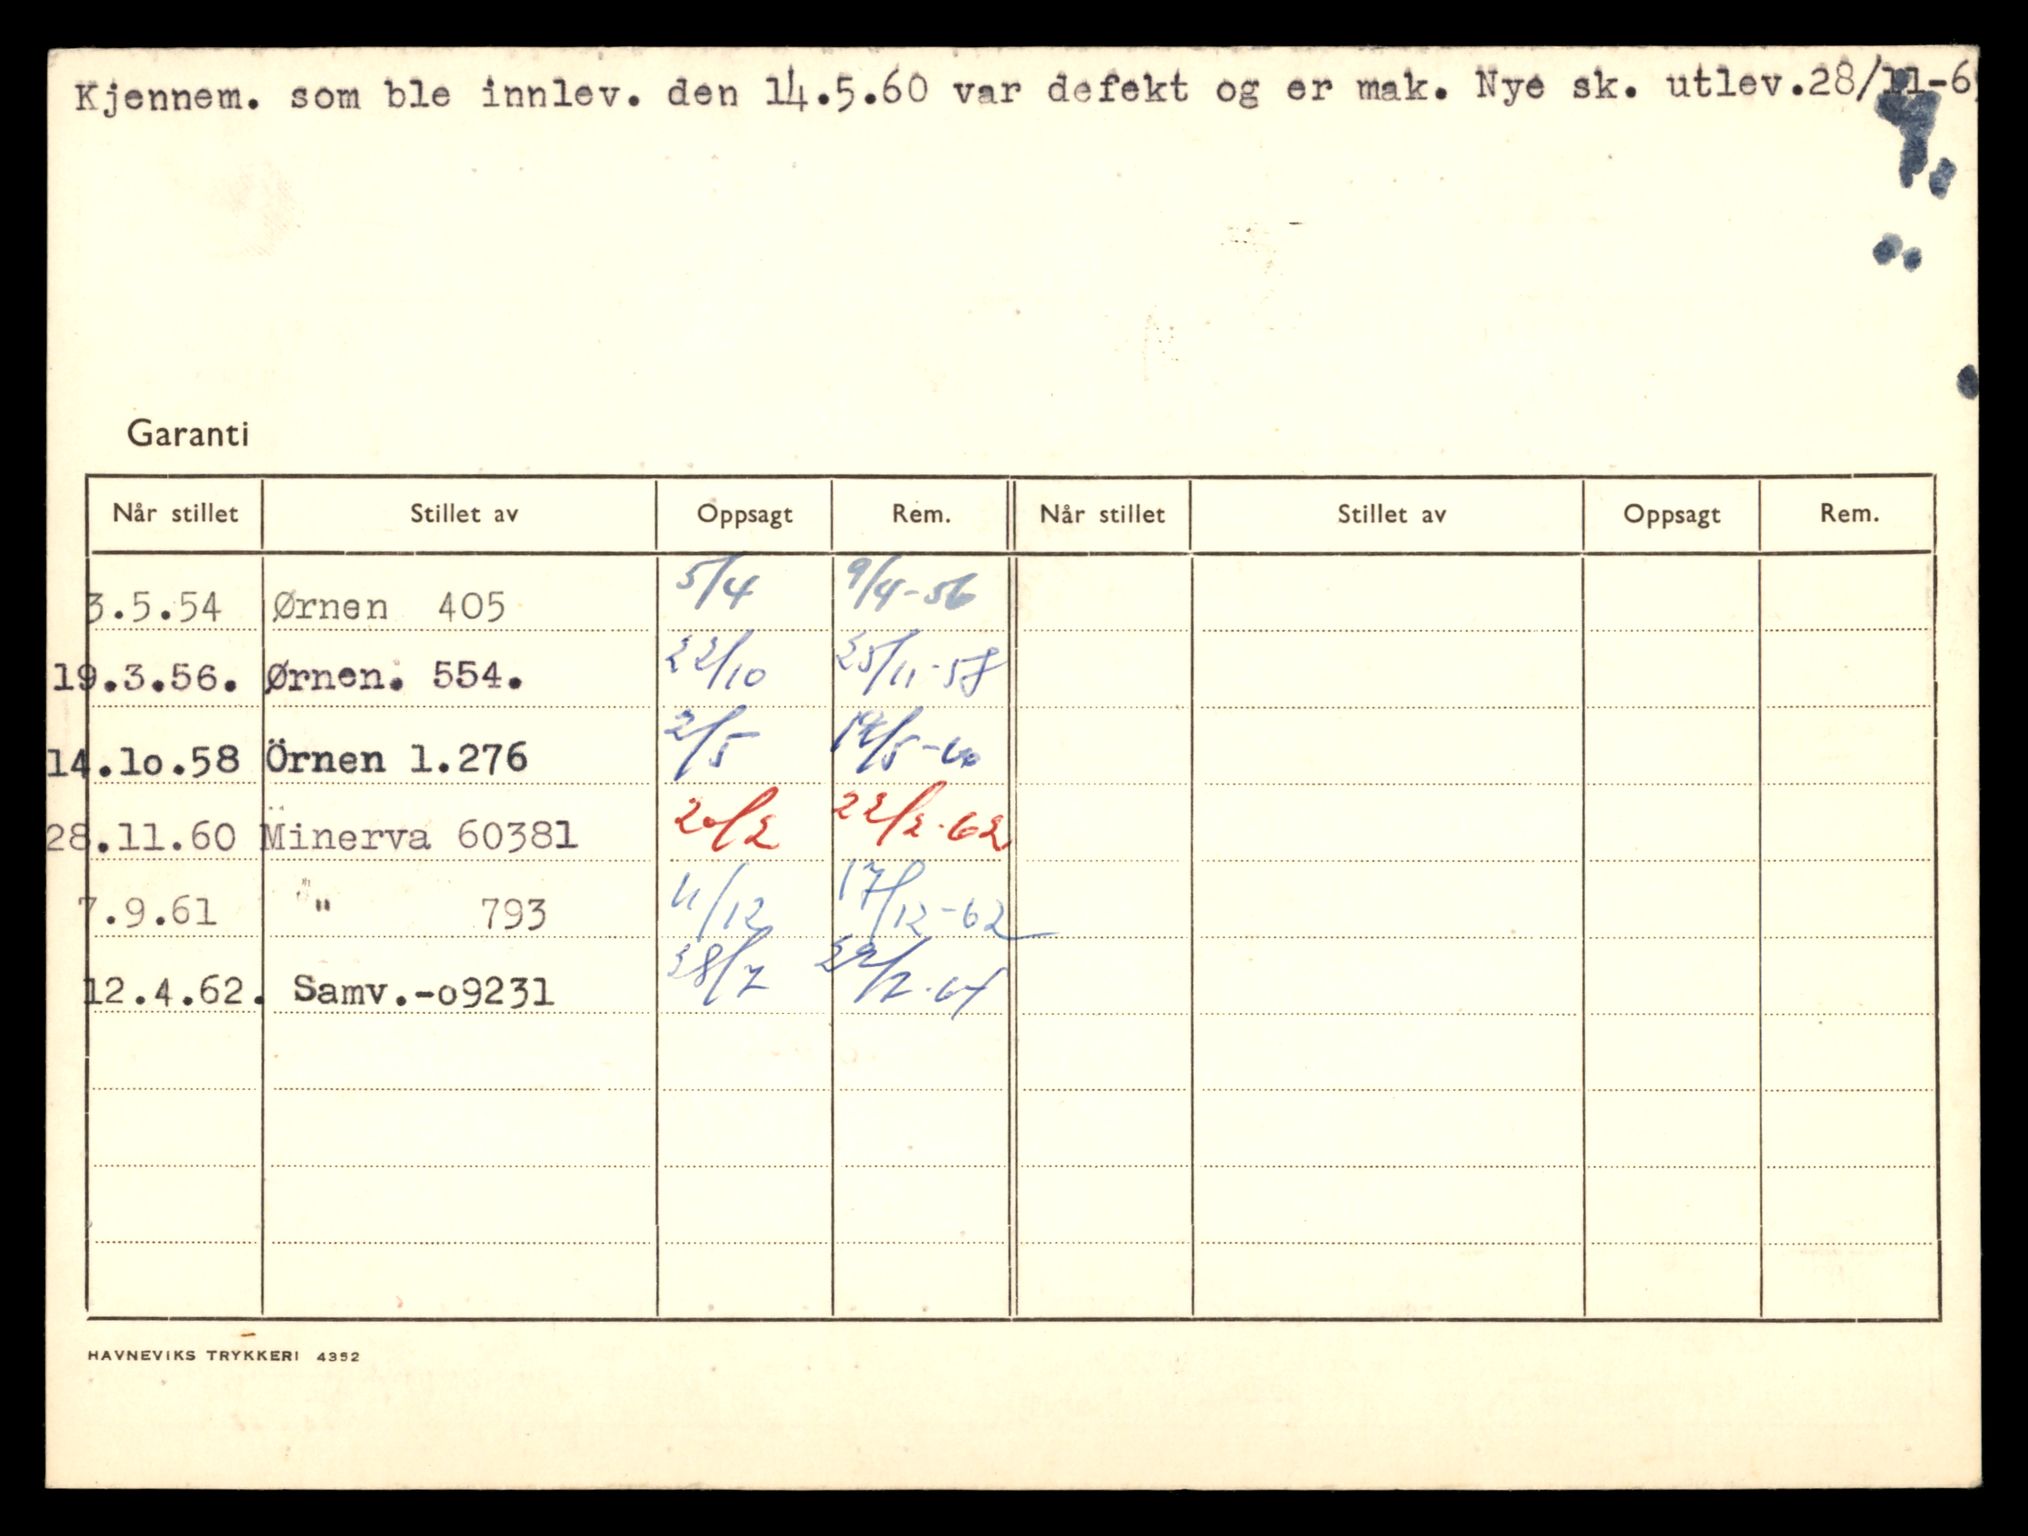 Kjennem. som ble innlev. den 14.5.60 var defekt og er mak. Nye sk. utlev.28/11-6
Garanti
Når stillet Stillet av Oppsagt Rem. Når stillet Stillet av Oppsagt Rem.
3.5.54 Ørnen 405 5/4 9/4-56
19.3.56. Ørnen. 554. 22/10 25/11-58
14.10.58 Örnen 1.276 2/5 14/5-60
28.11.60 Minerva 60381 20/2 22/2-62
7.9.61 " 793 11/12 17/12-62
12.4.62. Samv.-o9231 28/7 29/7-64
HAVNEVIKS TRYKKERI 4352